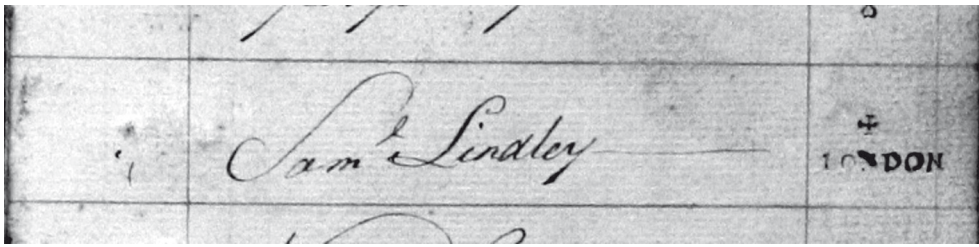 Sam^l Lindley
LONDON